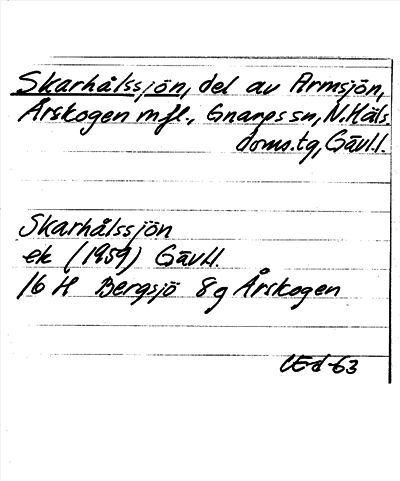 Skarhålssjön, del av Armsjön,
Årskogen m fl., Gnarps sn, N. Häls.
doms. tg, Gävl.l.
Skarhålssjön
ek (1959) Gävl.l.
16 H Bergsjö 8g Årskogen
63